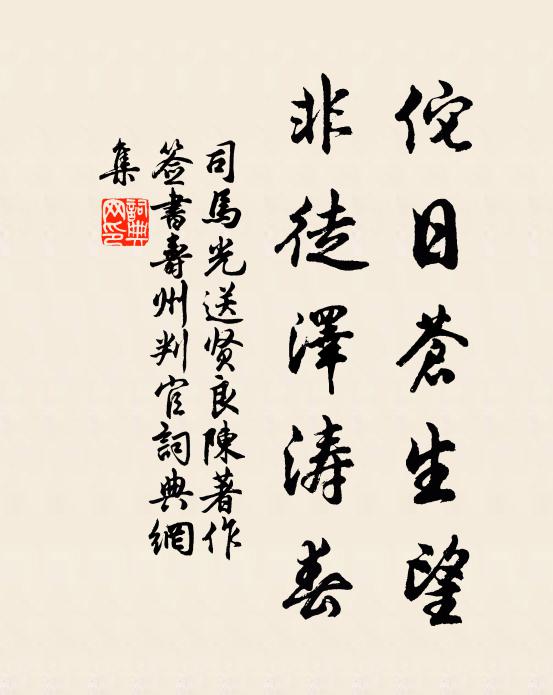 佗日蒼生望
非徒澤涛春
司馬光送贤良陳著作
签書壽州判官詞典網
集
詞典網印